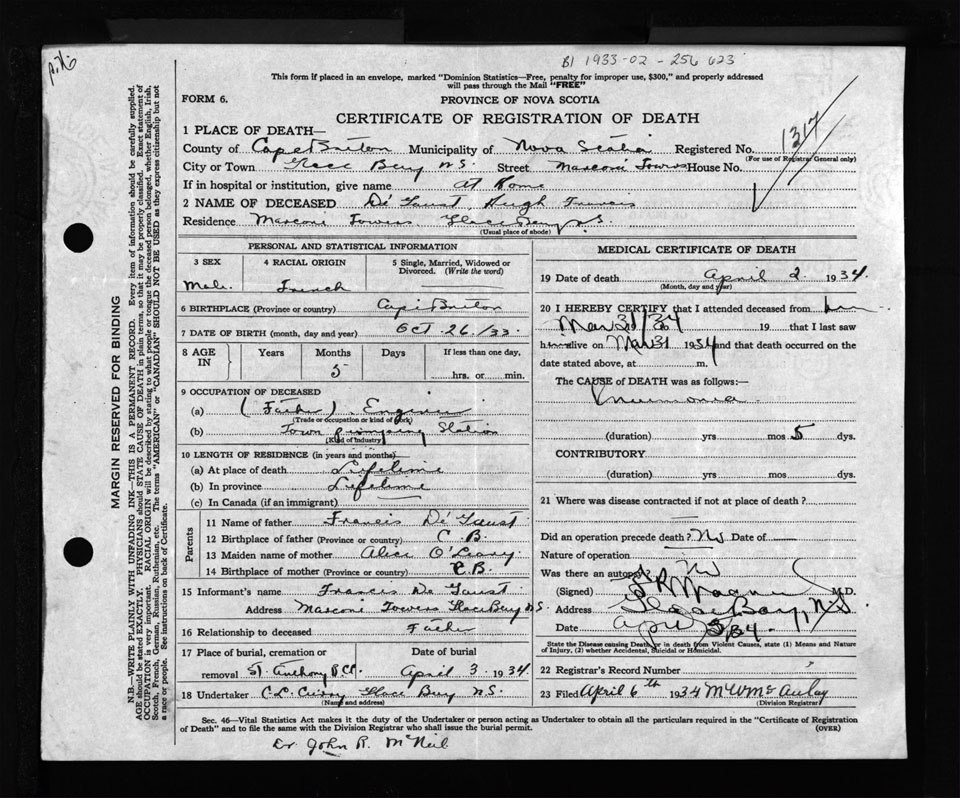 B1 1933-02-256623
This form if placed in an envelope, marked "Dominion Statistics—Free, penalty for improper use, $300," and properly addressed
will pass through the Mail "FREE"
FORM 6.
PROVINCE OF NOVA SCOTIA
CERTIFICATE OF REGISTRATION OF DEATH
1 PLACE OF DEATH—
County of Cape Breton Municipality of Nova Scotia Registered No. 1317
(For use of Registrar General only)
City or Town Glace Bay N.S. Street Marconi Towers House No.
If in hospital or institution, give name at Home
2 NAME OF DECEASED De Yaust, Hugh Francis
Residence Marconi Towers Glace Bay N.S.
(Usual place of abode)
PERSONAL AND STATISTICAL INFORMATION
3 SEX 4 RACIAL ORIGIN 5 Single, Married, Widowed or
Divorced. (Write the word)
Male. French
6 BIRTHPLACE (Province or country) Cape Breton
7 DATE OF BIRTH (month, day and year) Oct. 26/33
8 AGE IN Years Months Days If less than one day,
5 hrs. or min.
9 OCCUPATION OF DECEASED
(a) (Father) Engineer
(Trade or occupation or kind of work)
(b) Town pumping Station
(Kind of Industry)
10 LENGTH OF RESIDENCE (in years and months)
(a) At place of death Lifetime
(b) In province Lifetime
(c) In Canada (if an immigrant)
Parents
11 Name of father Francis De Yaust
12 Birthplace of father (Province or country) C.B.
13 Maiden name of mother Alice O'Leary
14 Birthplace of mother (Province or country) C.B.
15 Informant's name Francis De Yaust
Address Marconi Towers Glace Bay N.S.
16 Relationship to deceased Father
17 Place of burial, cremation or Date of burial
removal St. Anthony April 3 1934
18 Undertaker C.L. Curry Glace Bay N.S.
(Name and address)
MEDICAL CERTIFICATE OF DEATH
19 Date of death April 2 1934
(Month, day and year)
20 I HEREBY CERTIFY that I attended deceased from
Mar 31/34 19 that I last saw
him alive on Mar 31 1934 and that death occurred on the
date stated above, at m.
The CAUSE of DEATH was as follows:—
Pneumonia
(duration) yrs mos 5 dys.
CONTRIBUTORY
(duration) yrs. mos dys.
21 Where was disease contracted if not at place of death?
Did an operation precede death? No Date of
Nature of operation
Was there an autopsy No
(Signed) M.D.
Address Glace Bay, N.S.
Date April 34
State the Disease causing Death, or in death from Violent Causes, state (1) Means and Nature
of Injury, (2) whether Accidental, Suicidal or Homicidal.
22 Registrar's Record Number
23 Filed April 6th 1934 M W McAulay
(Division Registrar)
Sec. 46—Vital Statistics Act makes it the duty of the Undertaker or person acting as Undertaker to obtain all the particulars required in the "Certificate of Registration
of Death" and to file the same with the Division Registrar who shall issue the burial permit. (OVER)
Dr John R. McNeil
MARGIN RESERVED FOR BINDING
N.B.—WRITE PLAINLY WITH UNFADING INK—THIS IS A PERMANENT RECORD. Every item of information should be carefully supplied.
AGE should be stated EXACTLY. PHYSICIANS should STATE CAUSE OF DEATH in plain terms, so that it may be properly classified. Exact statement of
OCCUPATION is very important. RACIAL ORIGIN will be described by stating to what people or tongue the deceased person belonged, whether English, Irish,
Scotch, French, German, Russian, Ruthenian, etc. The terms "AMERICAN" or "CANADIAN" SHOULD NOT BE USED as they express citizenship but not
a race or people. See instructions on back of Certificate.